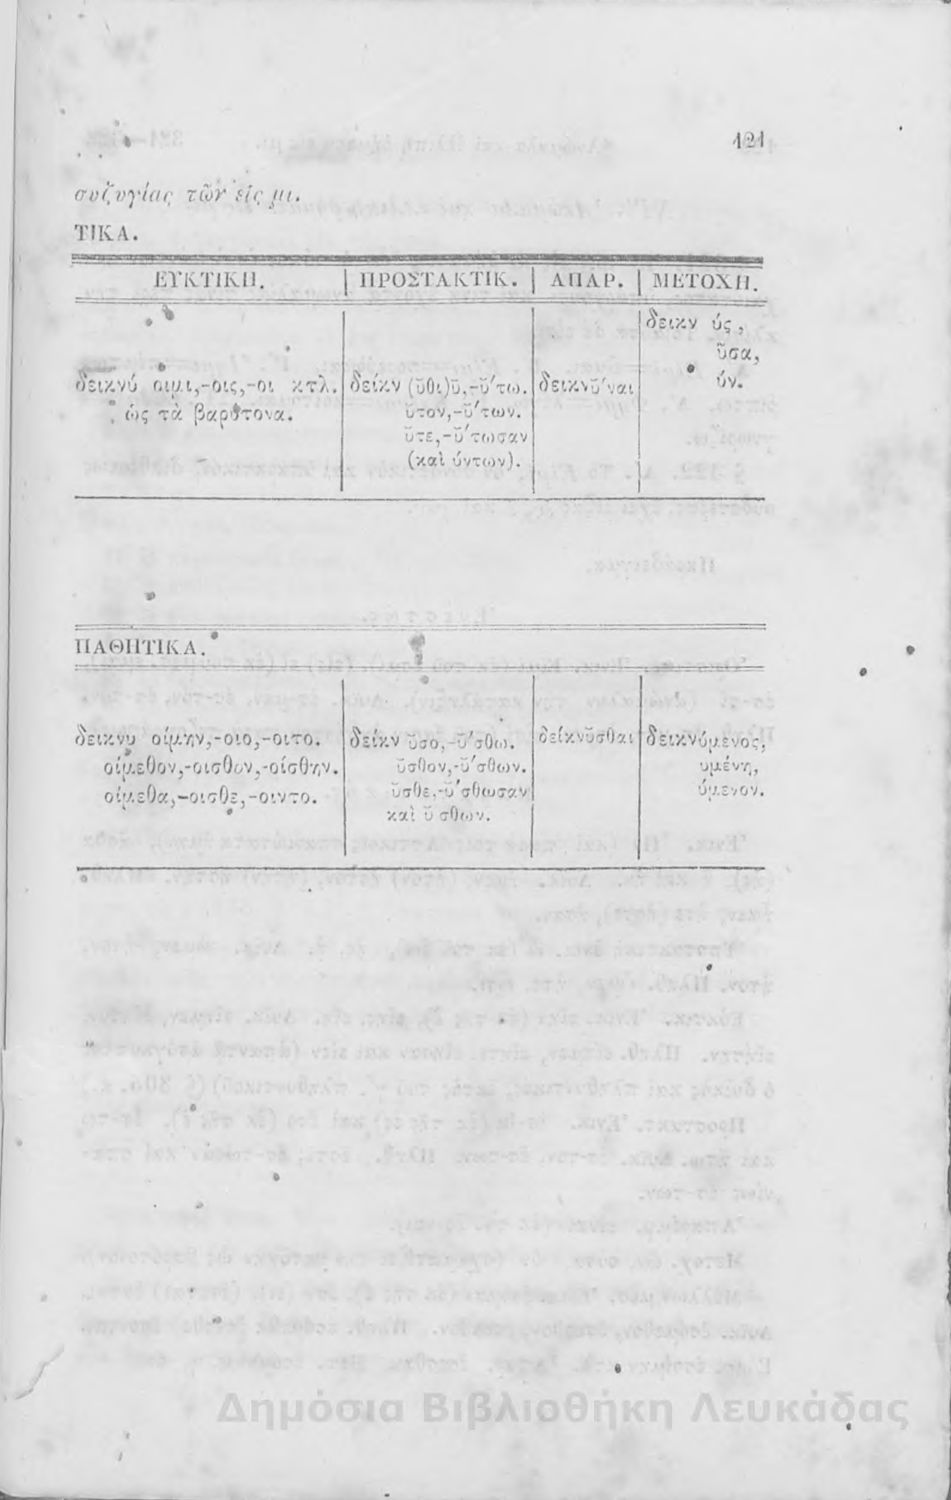 121
συζυγίας τῶν εἰς μι.
ΤΙΚΑ.
ΕΥΚΤΙΚΗ. | ΠΡΟΣΤΑΚΤΙΚ. | ΑΠΑΡ. | ΜΕΤΟΧΗ.
δεικν ύς,
ῦσα,
ύν.
δεικνύ οιμι,-οις,-οι κτλ.
ὡς τὰ βαρύτονα.
δείκν (ῡθι)ῡ,-ῡ́τω.
ῠτον,-ῠ́των.
ῠτε,-ῠ́τωσαν
(καὶ ύντων).
δεικνῠ́ναι
ΠΑΘΗΤΙΚΑ.
δεικνυ οίμην,-οιο,-οιτο.
οίμεθον,-οισθον,-οίσθην.
οίμεθα,-οισθε,-οιντο.
δείκν ῠσο,-ῠ́σθω.
ῠσθον,-ῠ́σθων.
ῠσθε,-ῠ́σθωσαν
καὶ ῠ́σθων.
δείκνῠσθαι
δεικνύμενος,
υμένη,
ύμενον.
Δημόσια Βιβλιοθήκη Λευκάδας